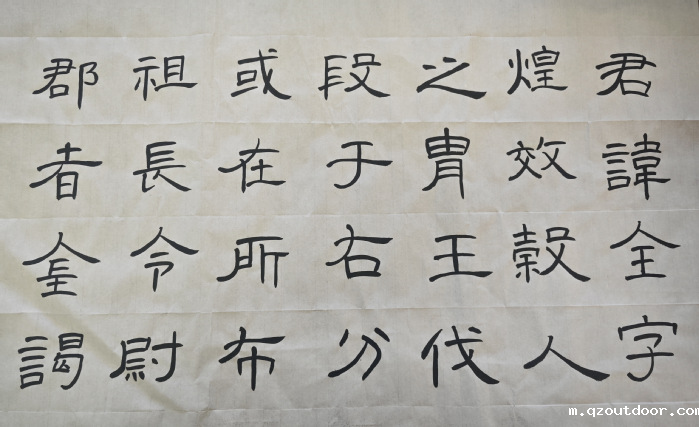 君諱全字
煌效穀人
之胄王伐
段于右分
或在所布
祖長令尉
郡者謁
m.qzoutdoor.com